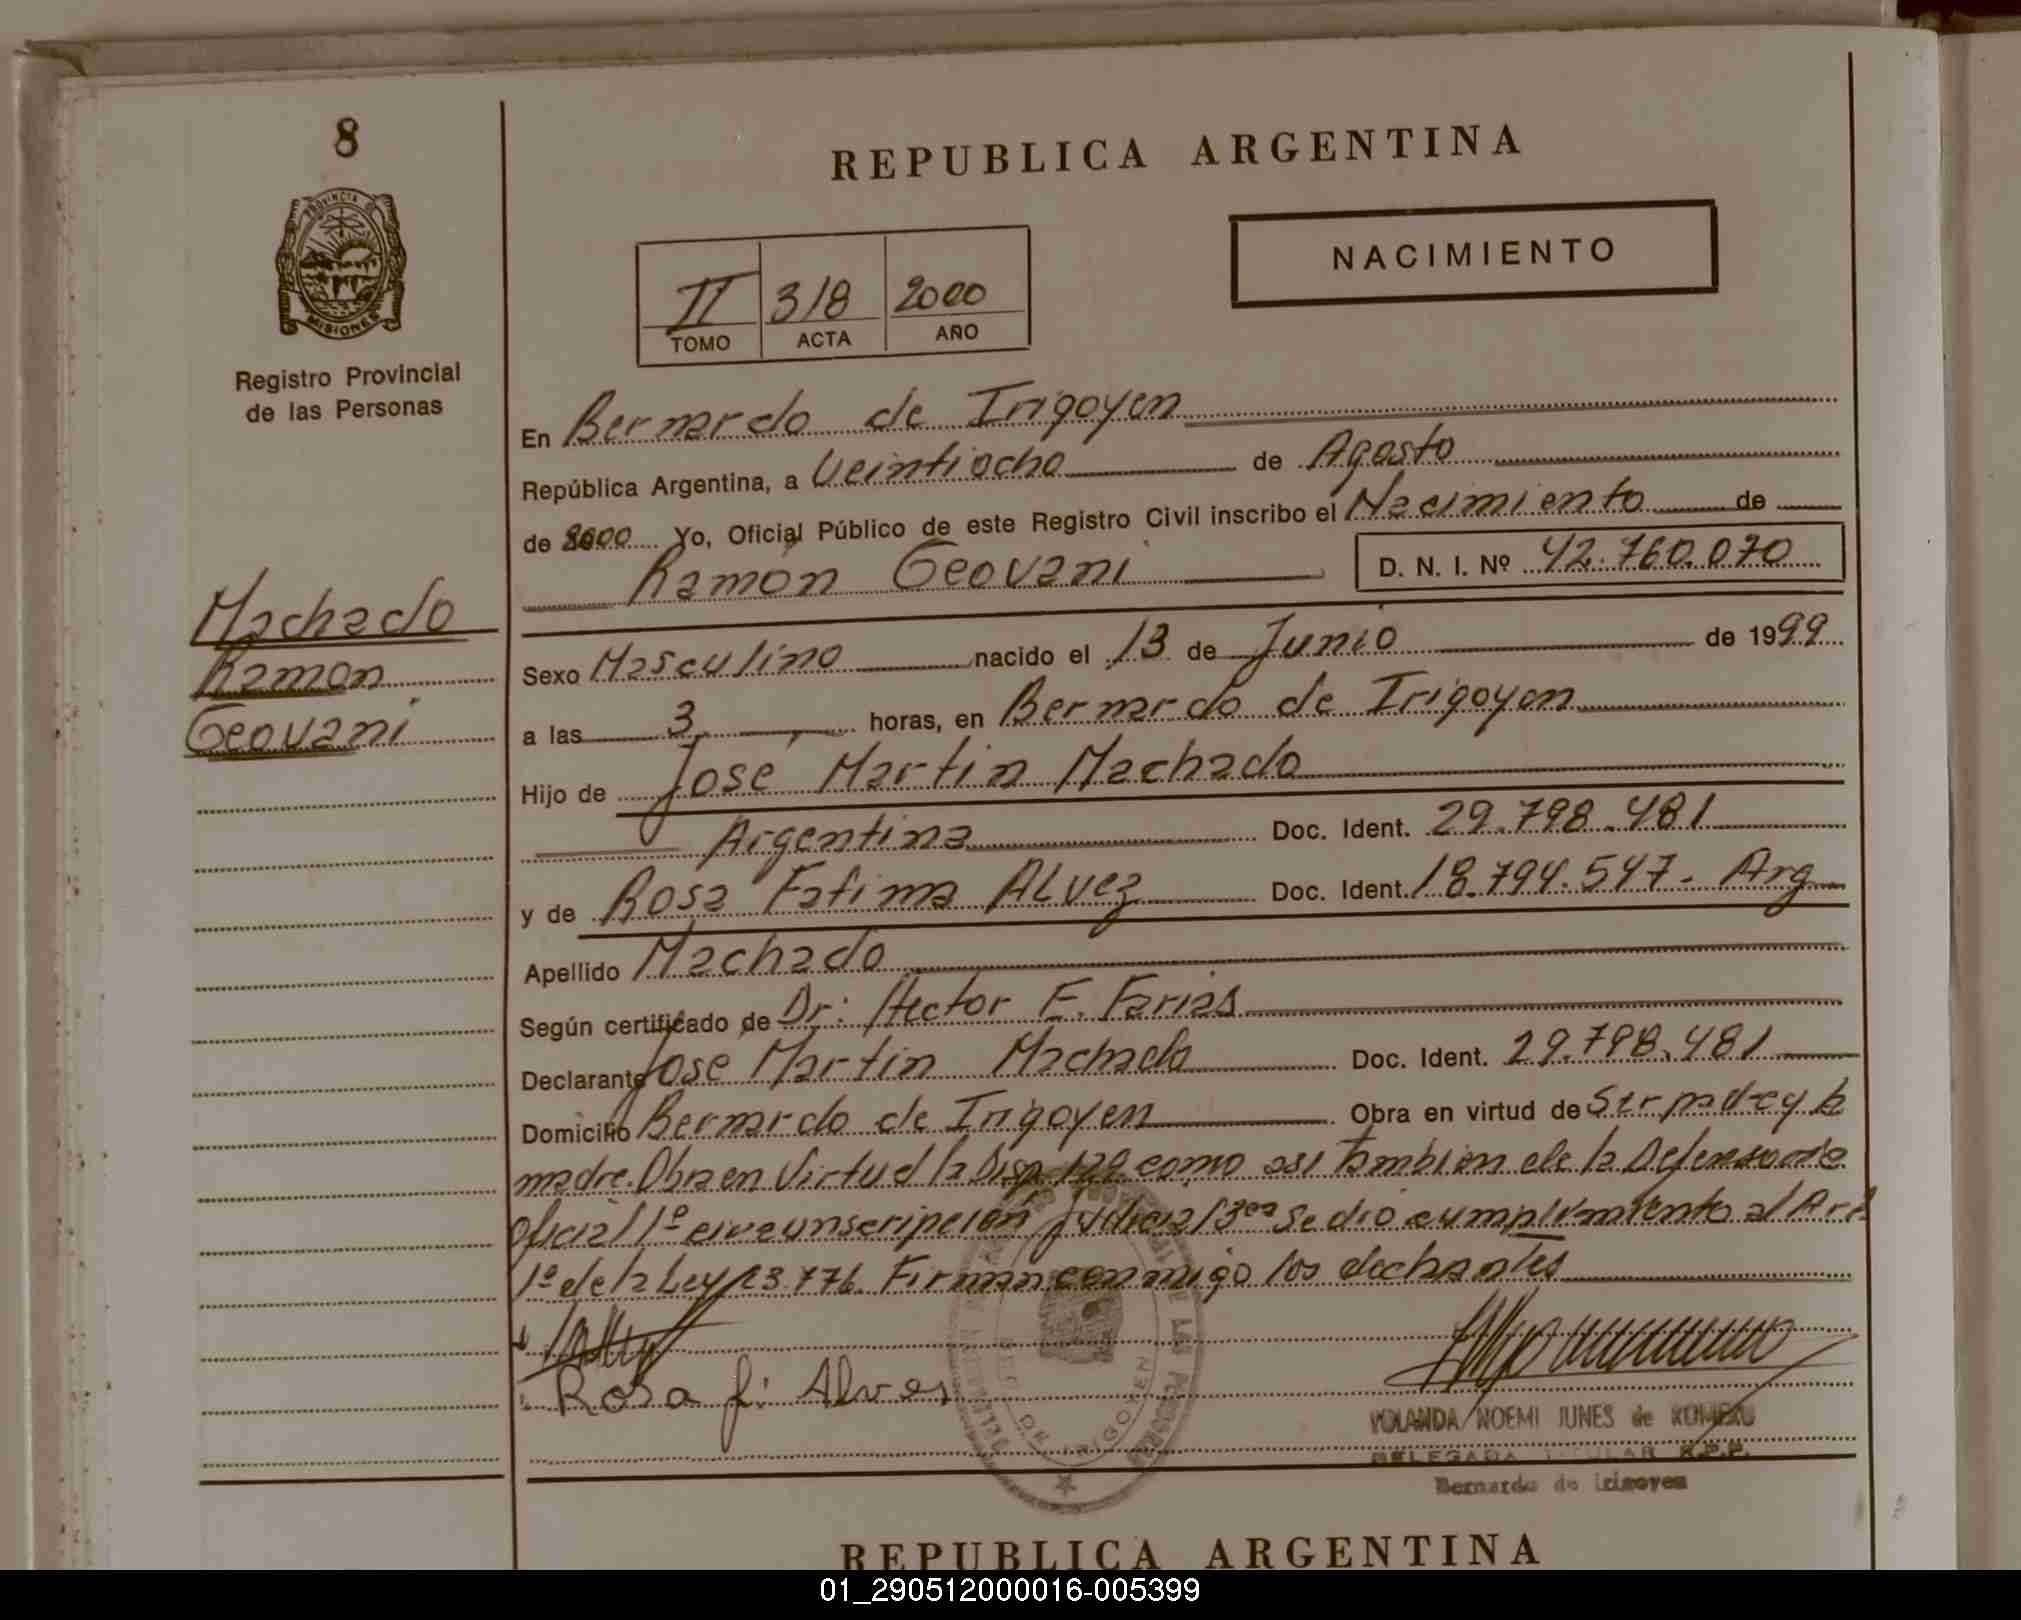 8
REPUBLICA ARGENTINA
NACIMIENTO
II 318 2000
TOMO ACTA AÑO
PROVINCIA DE
MISIONES
Registro Provincial
de las Personas
En Bernardo de Irigoyen
República Argentina, a Veintiocho de Agosto
de 2000 Yo, Oficial Público de este Registro Civil inscribo el Nacimiento de
Ramón Geovani D. N. I. Nº 42.760.070
Machado
Ramon
Geovani
Sexo Masculino nacido el 13 de Junio de 1999
a las 3 horas, en Bernardo de Irigoyen
Hijo de José Martin Machado
Argentina Doc. Ident. 29.798.481
y de Rosa Fatima ALvez Doc. Ident. 18.794.547- Arg
Apellido Machado
Según certificado de Dr: Hector E. Farias
Declarante José Martin Machado Doc. Ident. 29.798.481
Domicilio Bernardo de Irigoyen Obra en virtud de Ser padre y la
madre. Obra en Virtud la Disp como asi tambien de la Defensoria
Oficial 1º circunscripción Judicial Se dió cumplimiento al Art
1º de la Ley 23.776. Firman conmigo los declarantes
Rosa f: Alves
YOLANDA NOEMI JUNES de ROMERO
DELEGADA TITULAR R.P.P.
Bernardo de Irigoyen
DE IRIGOYEN
REPUBLICA ARGENTINA
01_290512000016-005399